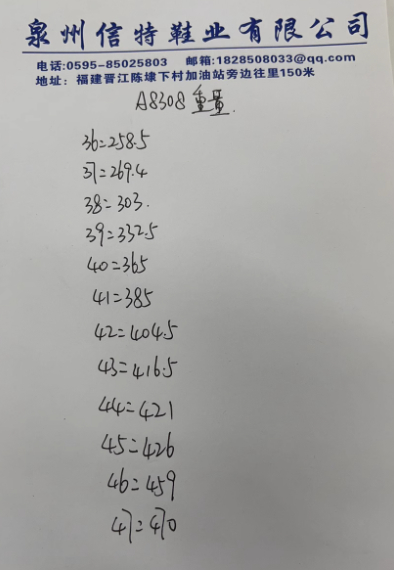 泉州信特鞋业有限公司
电话:0595-85025803 邮箱:1828508033@qq.com
地址：福建晋江陈埭下村加油站旁边往里150米
A8308 重量.
36=258.5
37=269.4
38=303.
39=332.5
40=365
41=385
42=404.5
43=416.5
44=421
45=426
46=459
47=470